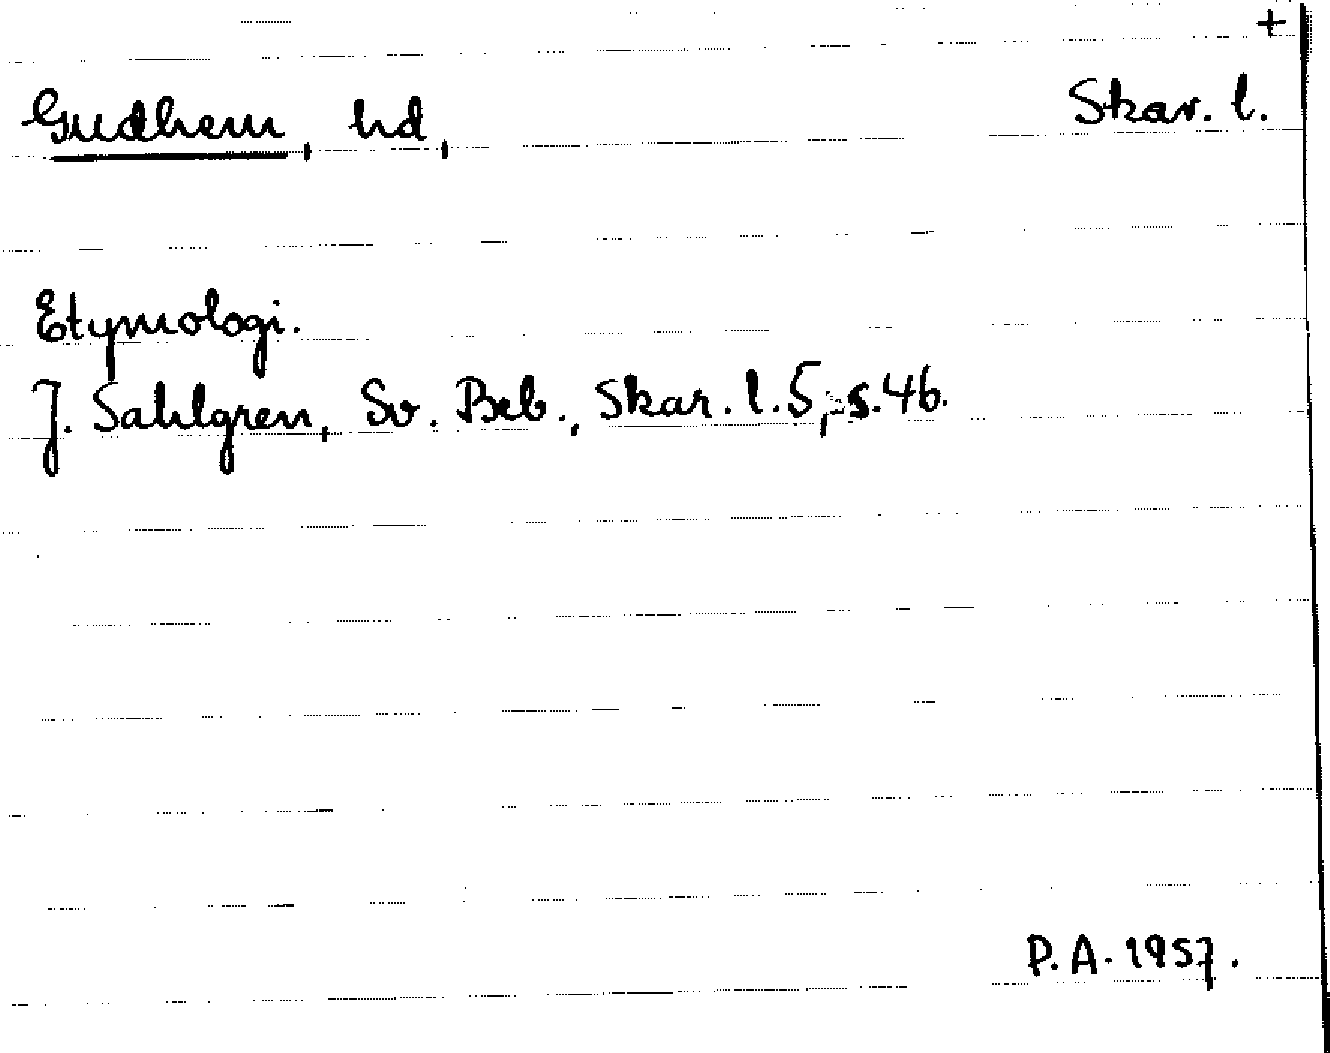 +
Gudhem, hd, Skar. l.
Etymologi.
J. Sahlgren, Sv. Beb., Skar. l. 5, s. 46.
P. A. 1957.